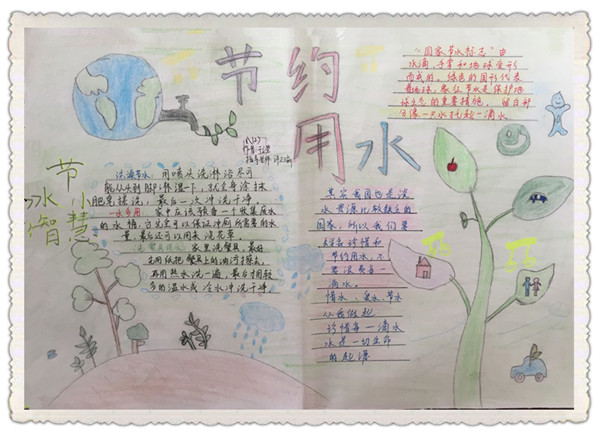 节约
用水
"国家节水标志"由
水滴,手掌和地球变形
而成的。绿色的圆形代表
着地球,象征节水是保护地
球生态的重要措施。留白部
分像一只水托起一滴水
节
水
小
智
慧
洗澡节水,用喷头洗淋浴尽可
能从头到脚淋湿一下,就全身涂抹
肥皂搓洗,最后一次冲洗干净。
一水多用 家中应该预备一个收集废水
的水桶,它完全可以保证冲厕所需要的水
量,最后还可以用来浇花草。
家里洗餐具,最好
先用纸把餐具上的油污擦去,
再用热水洗一遍,最后才用较
多的温水或冷水冲洗干净。
其实我国也是淡
水资源比较缺乏的
国家,所以我们要
珍惜和
节约用水,不
要浪费每一
滴水。
惜水、爱水、节水
从我做起
珍惜每一滴水
水是一切生命
的起源